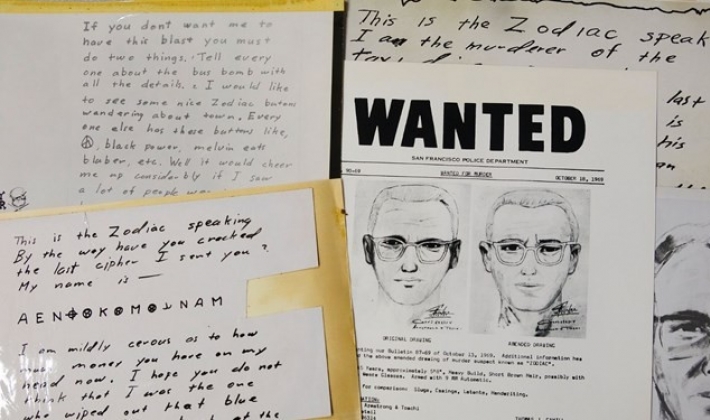 If you don't want me to
have this blast you must
do two things. Tell every
one about the bus bomb with
all the details. I would like
to see some nice Zodiac butons
wandering about town. Every
one else has these buttons like,
☮, black power, melvin eats
blaber, etc. Well it would cheer
me up considerbly if I saw
a lot of people
This is the Zodiac speaking
By the way have you cracked
the last cipher I sent you?
My name is —
A E N ⊕ K M ⌖ N A M
I am mildly cerous as to how
much money you have on my
head now. I hope you do not
think that I was the one
who wiped out that blue
at the
This is the Zodiac speak
I am the murderer of the
last
is
his
an
WANTED
SAN FRANCISCO POLICE DEPARTMENT
90-69 WANTED FOR MURDER OCTOBER 18, 1969
ORIGINAL DRAWING AMENDED DRAWING
our Bulletin 87-69 of October 13, 1969. Additional information has
the above amended drawing of murder suspect known as "ZODIAC".
Years, approximately 5'8", Heavy Build, Short Brown Hair, possibly with
Glasses. Armed with 9 MM Automatic.
for comparison: Slugs, Casings, Latents, Handwriting.
Armstrong & Toschi